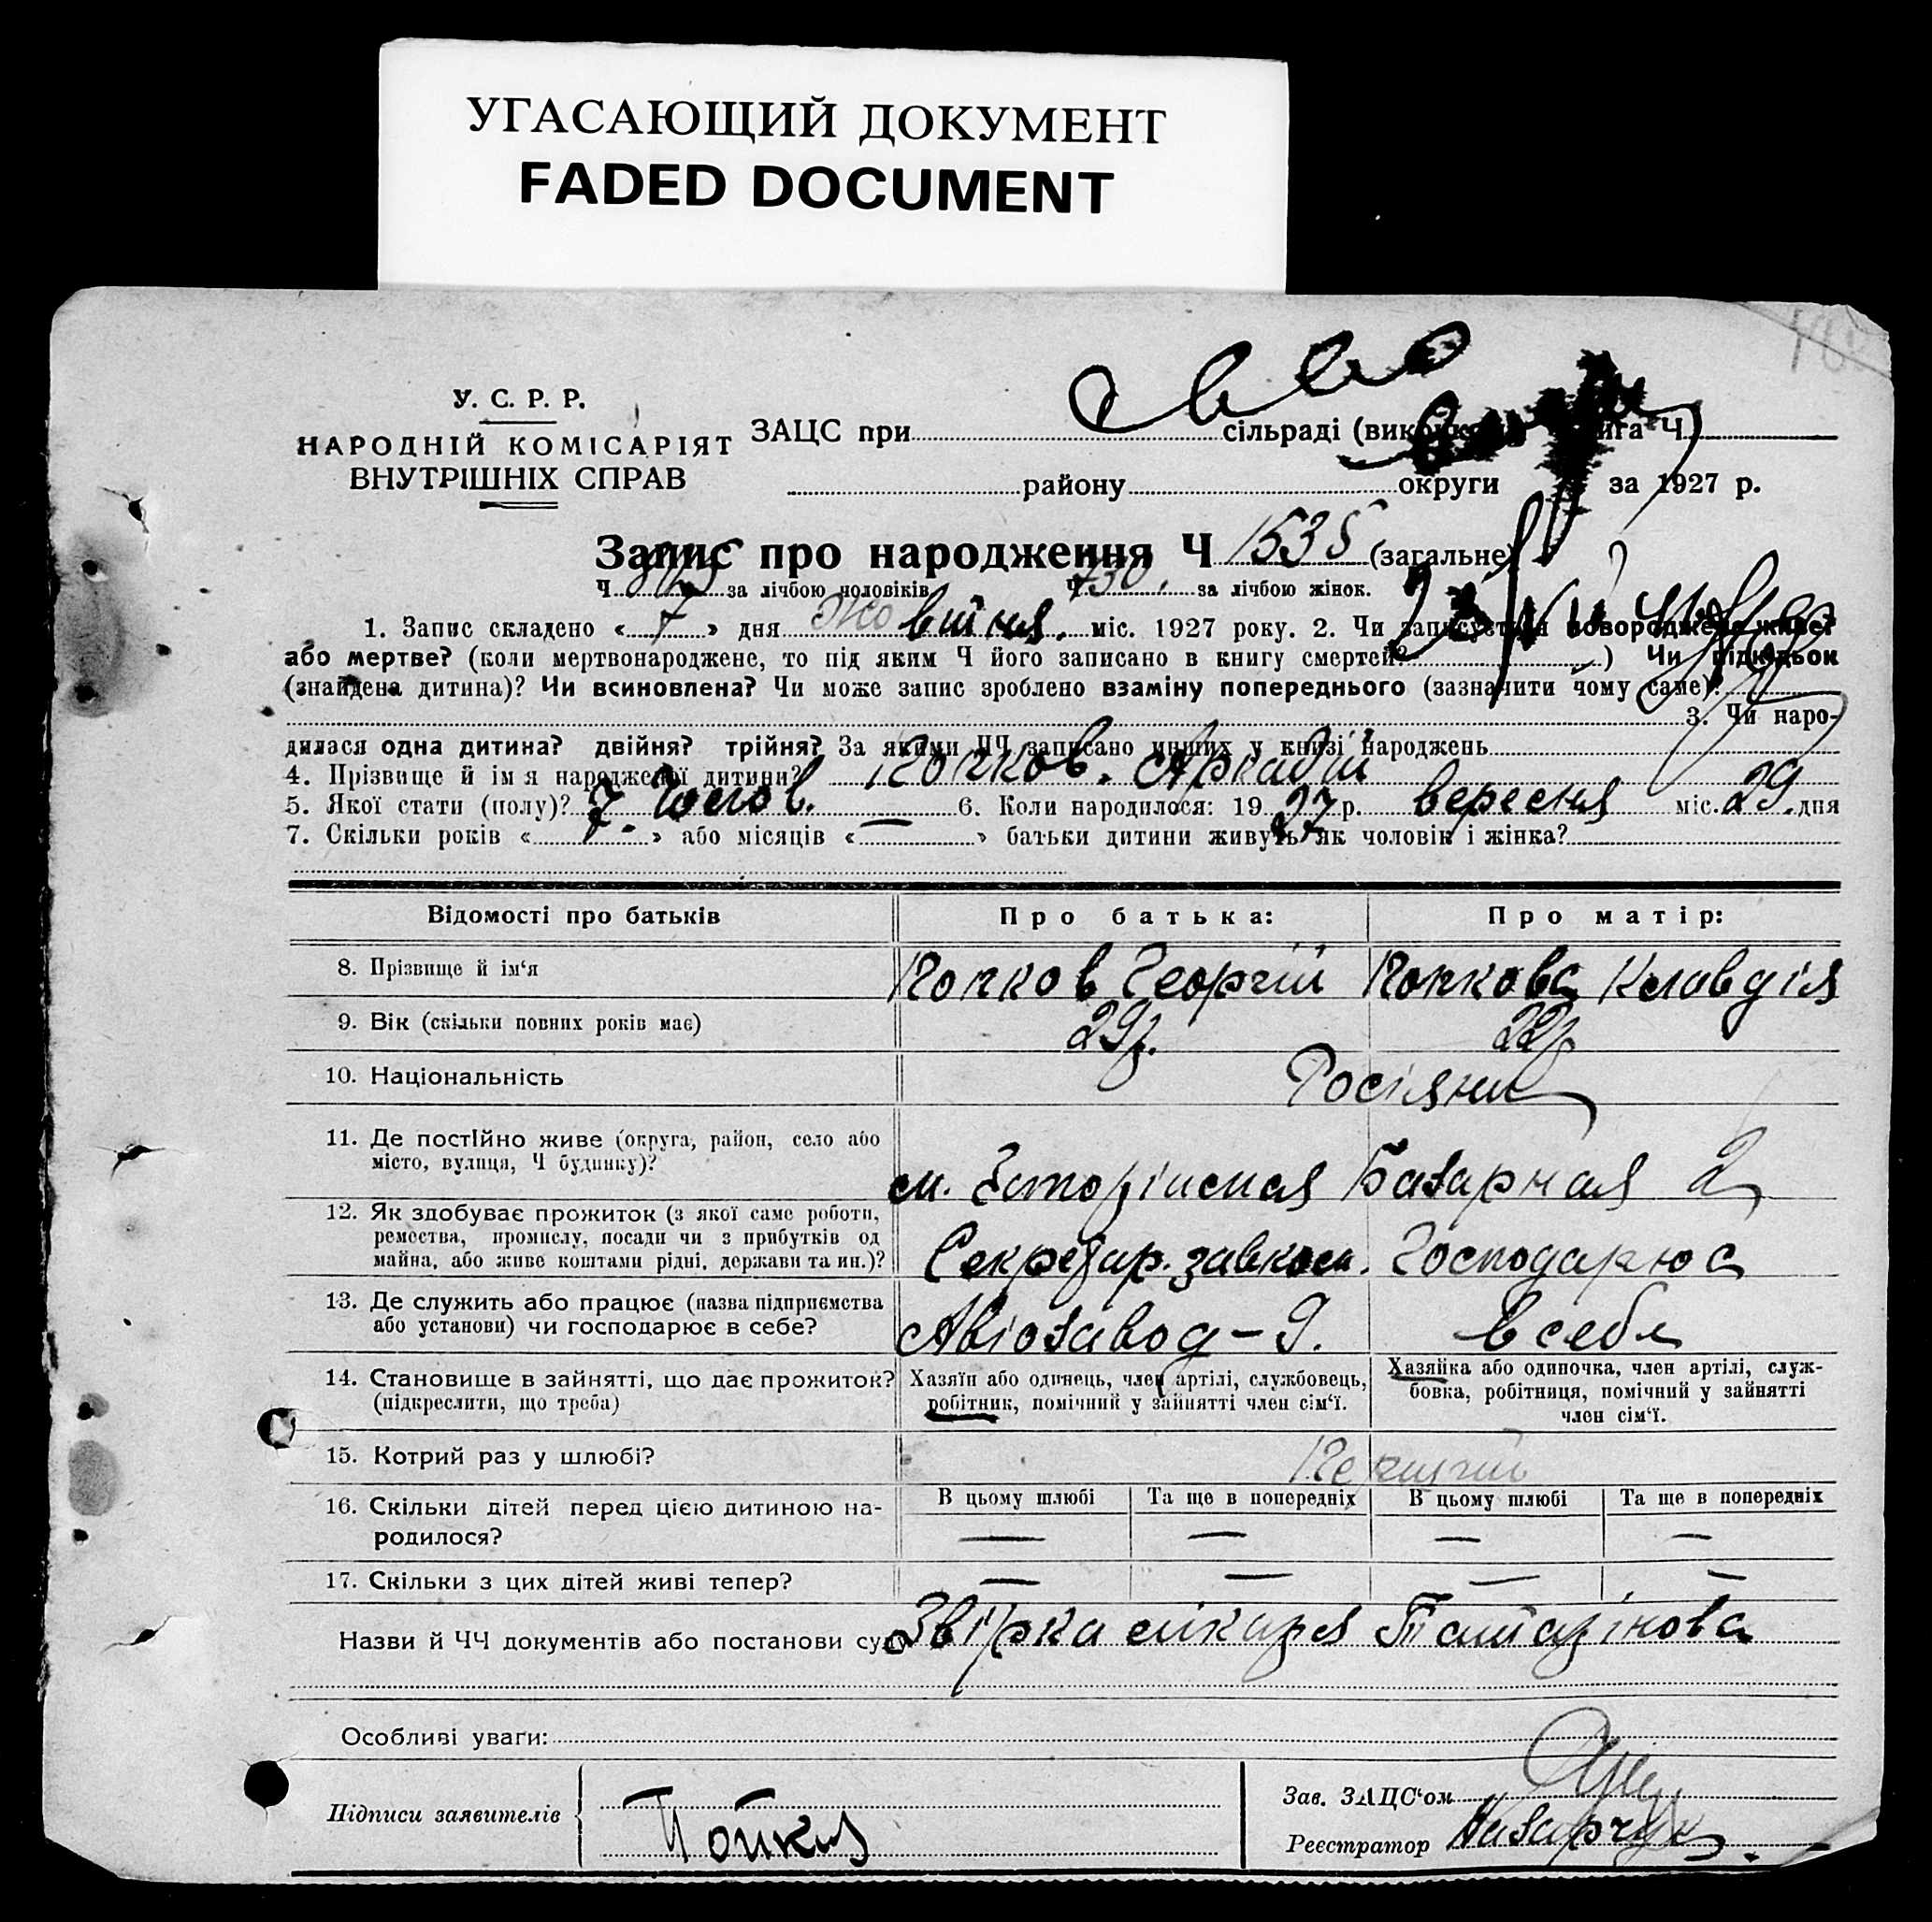 УГАСАЮЩИЙ ДОКУМЕНТ
FADED DOCUMENT
У. С. Р. Р.
НАРОДНІЙ КОМІСАРІЯТ
ВНУТРІШНІХ СПРАВ
ЗАЦС при сільраді Ч
району округи за 1927 р.
Запис про народження Ч 1535 (загальне)
Ч за лічбою чоловіків Ч 730. за лічбою жінок.
1. Запис складено « 7 » дня Жовтня. міс. 1927 року. 2. Чи записується новороджене живе?
або мертве? (коли мертвонароджене, то під яким Ч його записано в книгу смертей? ) Чи підкидьок
(знайдена дитина)? Чи всиновлена? Чи може запис зроблено взаміну попереднього (зазначити чому саме)?
3. Чи наро-
дилася одна дитина? двійня? трійня? За якими ЧЧ записано инших у книзі народжень
4. Прізвище й імя народженої дитини? Аркадій
5. Якої стати (полу)? Чолов. 6. Коли народилося: 19 27 р. вересня міс. 29 дня
7. Скільки років « 7. » або місяців « — » батьки дитини живуть як чоловік і жінка?
Відомості про батьків Про батька: Про матір:
8. Прізвище й ім‘я Георгій Клавдія
9. Вік (скільки повних років має) 29р. 22р.
10. Національність Росіяни
11. Де постійно живе (округа, район, село або
місто, вулиця, Ч будинку)? Базарная 2
12. Як здобуває прожиток (з якої саме роботи,
ремества, промислу, посади чи з прибутків од
майна, або живе коштами рідні, держави та ин.)? Секретар. завком. Господарює
13. Де служить або працює (назва підприємства
або установи) чи господарює в себе? Авіозавод – 9. в себе
14. Становище в зайнятті, що дає прожиток?
(підкреслити, що треба)
Хазяїн або одинець, член артілі, службовець,
робітник, помічний у зайнятті член сім‘ї.
Хазяйка або одиночка, член артілі, служ-
бовка, робітниця, помічний у зайнятті
член сім‘ї.
15. Котрий раз у шлюбі?
16. Скільки дітей перед цією дитиною на-
родилося?
В цьому шлюбі Та ще в попередніх В цьому шлюбі Та ще в попередніх
— — — —
17. Скільки з цих дітей живі тепер? — — — —
Назви й ЧЧ документів або постанови суду лікаря
Особливі уваги:
Підписи заявителів
Зав. ЗАЦС‘ом
Реєстратор Назарчук